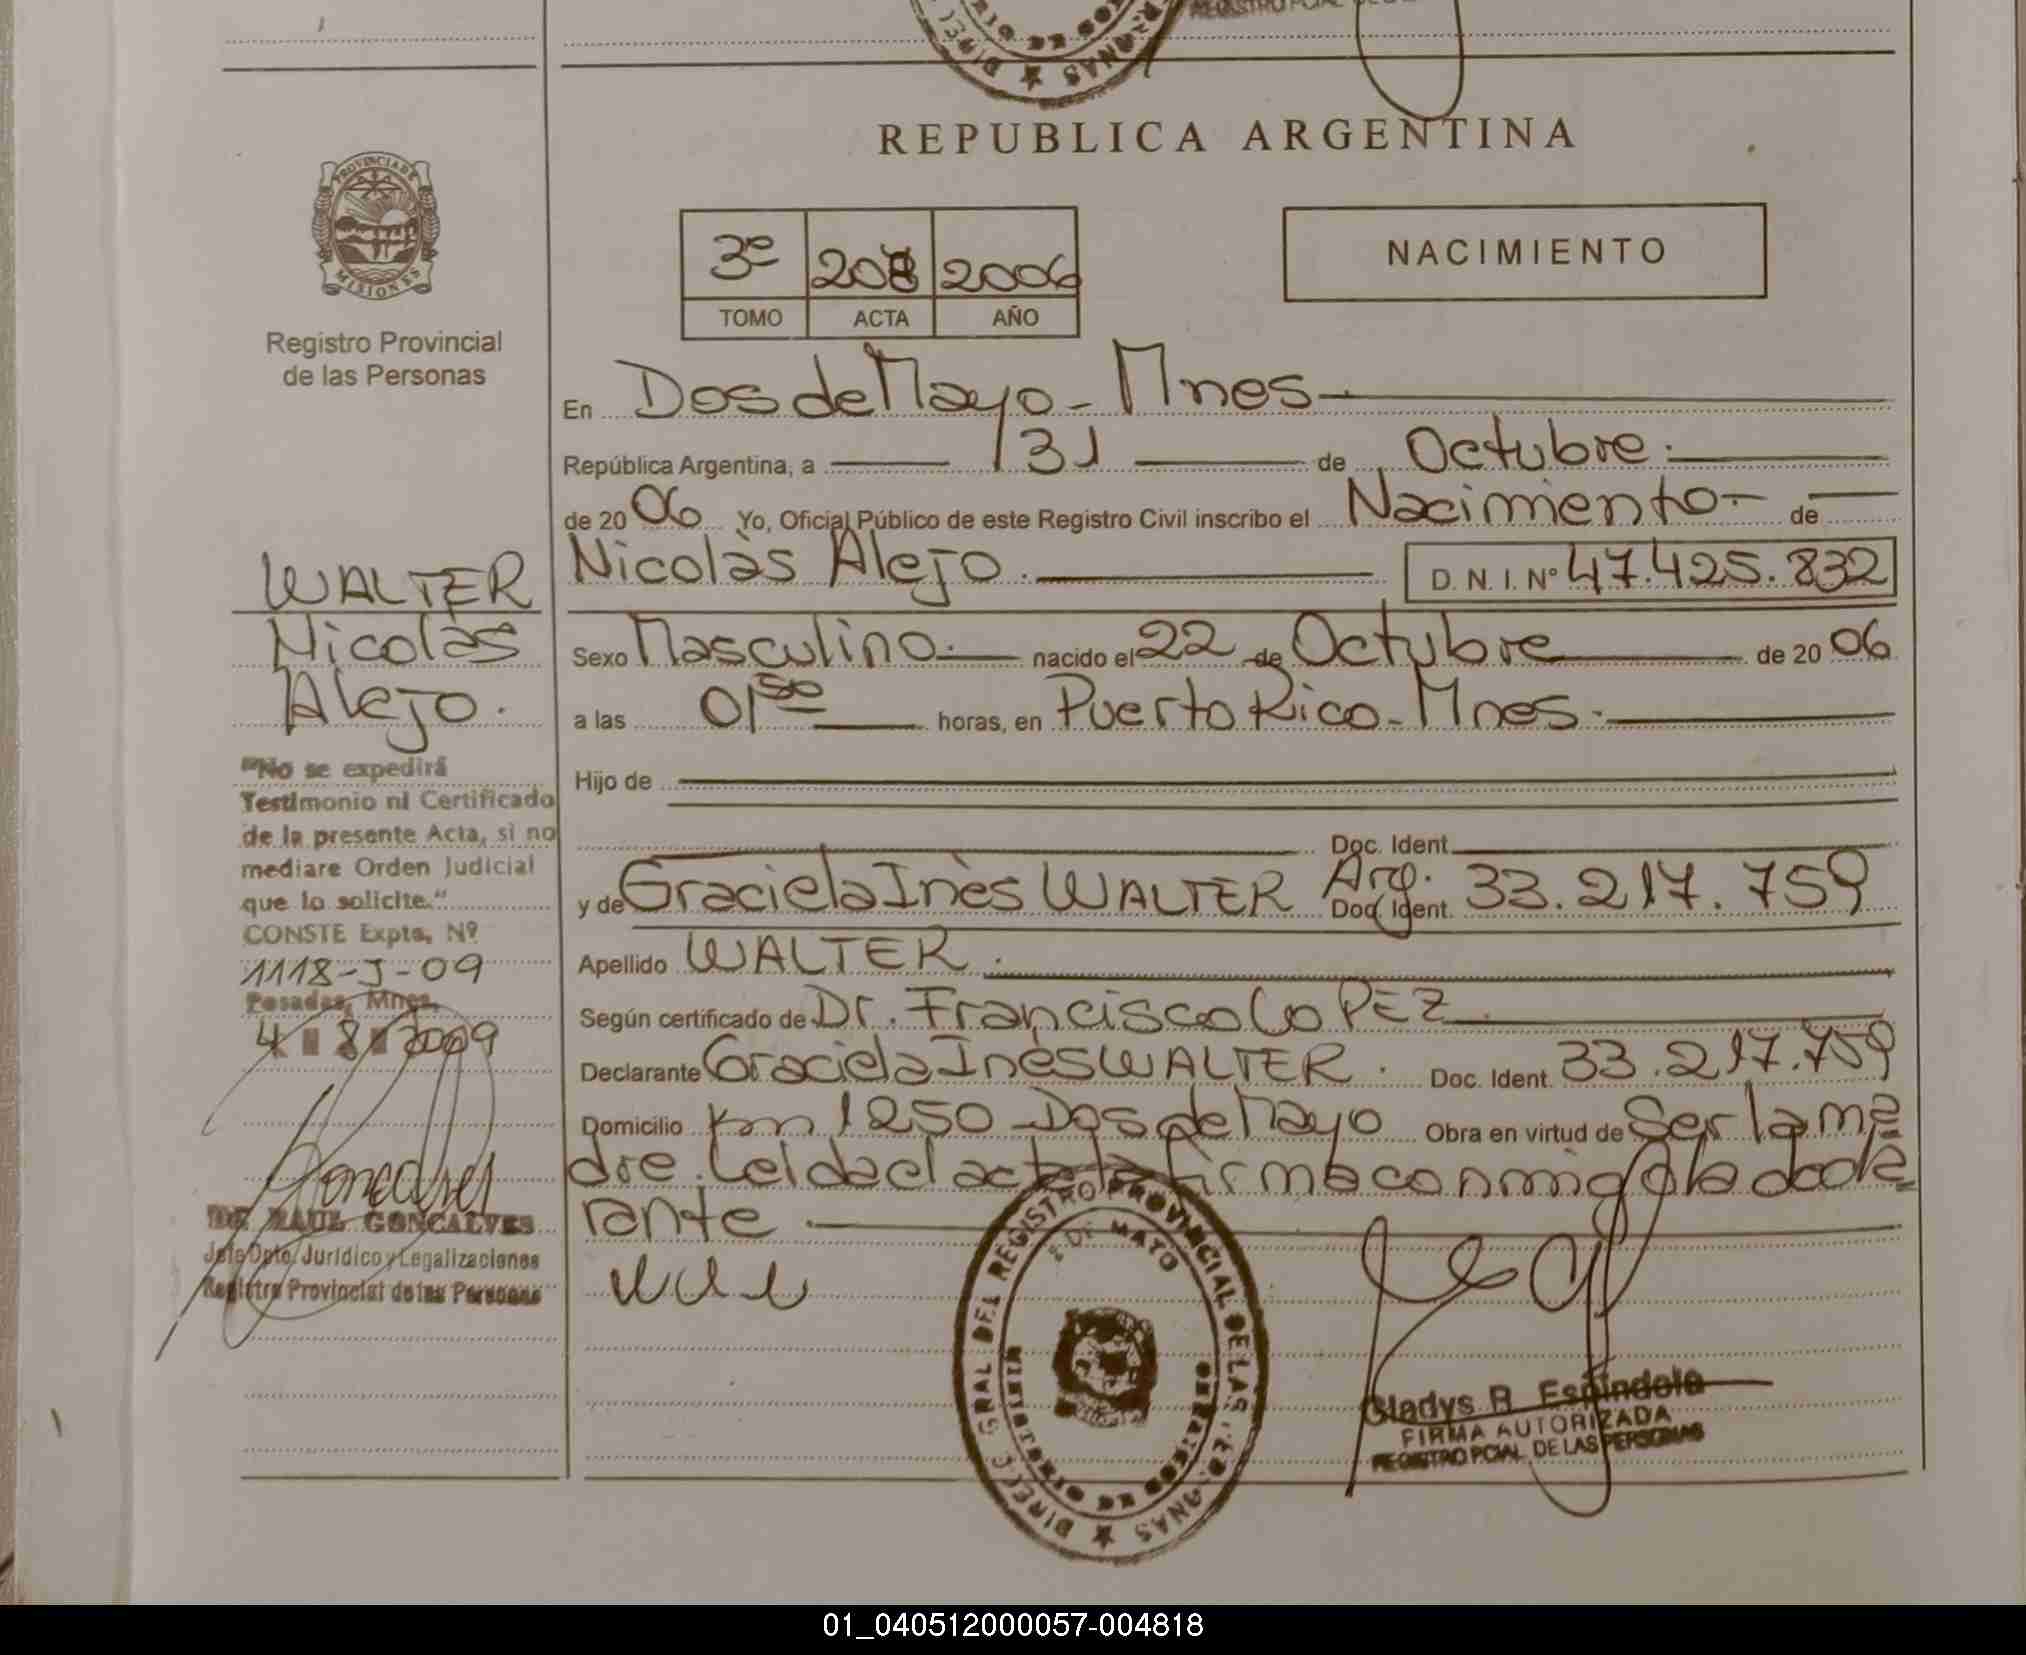 REPUBLICA ARGENTINA
PROVINCIA DE
MISIONES
Registro Provincial
de las Personas
3º 208 2006
TOMO ACTA AÑO
NACIMIENTO
En Dos de Mayo - Mnes
República Argentina, a 31 de Octubre.
de 2006 Yo, Oficial Público de este Registro Civil inscribo el Nacimiento - de
Nicolàs Alejo. D. N. I. Nº 47.425.832
Sexo Masculino. nacido el 22 de Octubre de 2006
a las 01⁵⁰ horas, en Puerto Rico - Mnes.
Hijo de
Doc. Ident.
y de Graciela Inès WALTER Arg. Doc. Ident. 33.217.759
Apellido WALTER.
Según certificado de Dr. Francisco LoPEZ.
Declarante Graciela Inès WALTER. Doc. Ident. 33.217.759
Domicilio Km 1250 - Dos de Mayo Obra en virtud de Ser la ma
dre. Leida el acta la firma conmigo la decla
rante.
WALTER
Nicolàs
Alejo.
"No se expedirá
Testimonio ni Certificado
de la presente Acta, si no
mediare Orden Judicial
que lo solicite."
CONSTE Expte, Nº
1118-J-09
Posadas, Mnes,
4 8 2009
RAUL GONCALVES
Jefe Dpto. Jurídico y Legalizaciones
Registro Provincial de las Personas
GRAL DEL REGISTRO PROVINCIAL DE LAS
2 DE MAYO
Gladys R. Espíndola
FIRMA AUTORIZADA
REGISTRO PCIAL. DE LAS PERSONAS
01_040512000057-004818